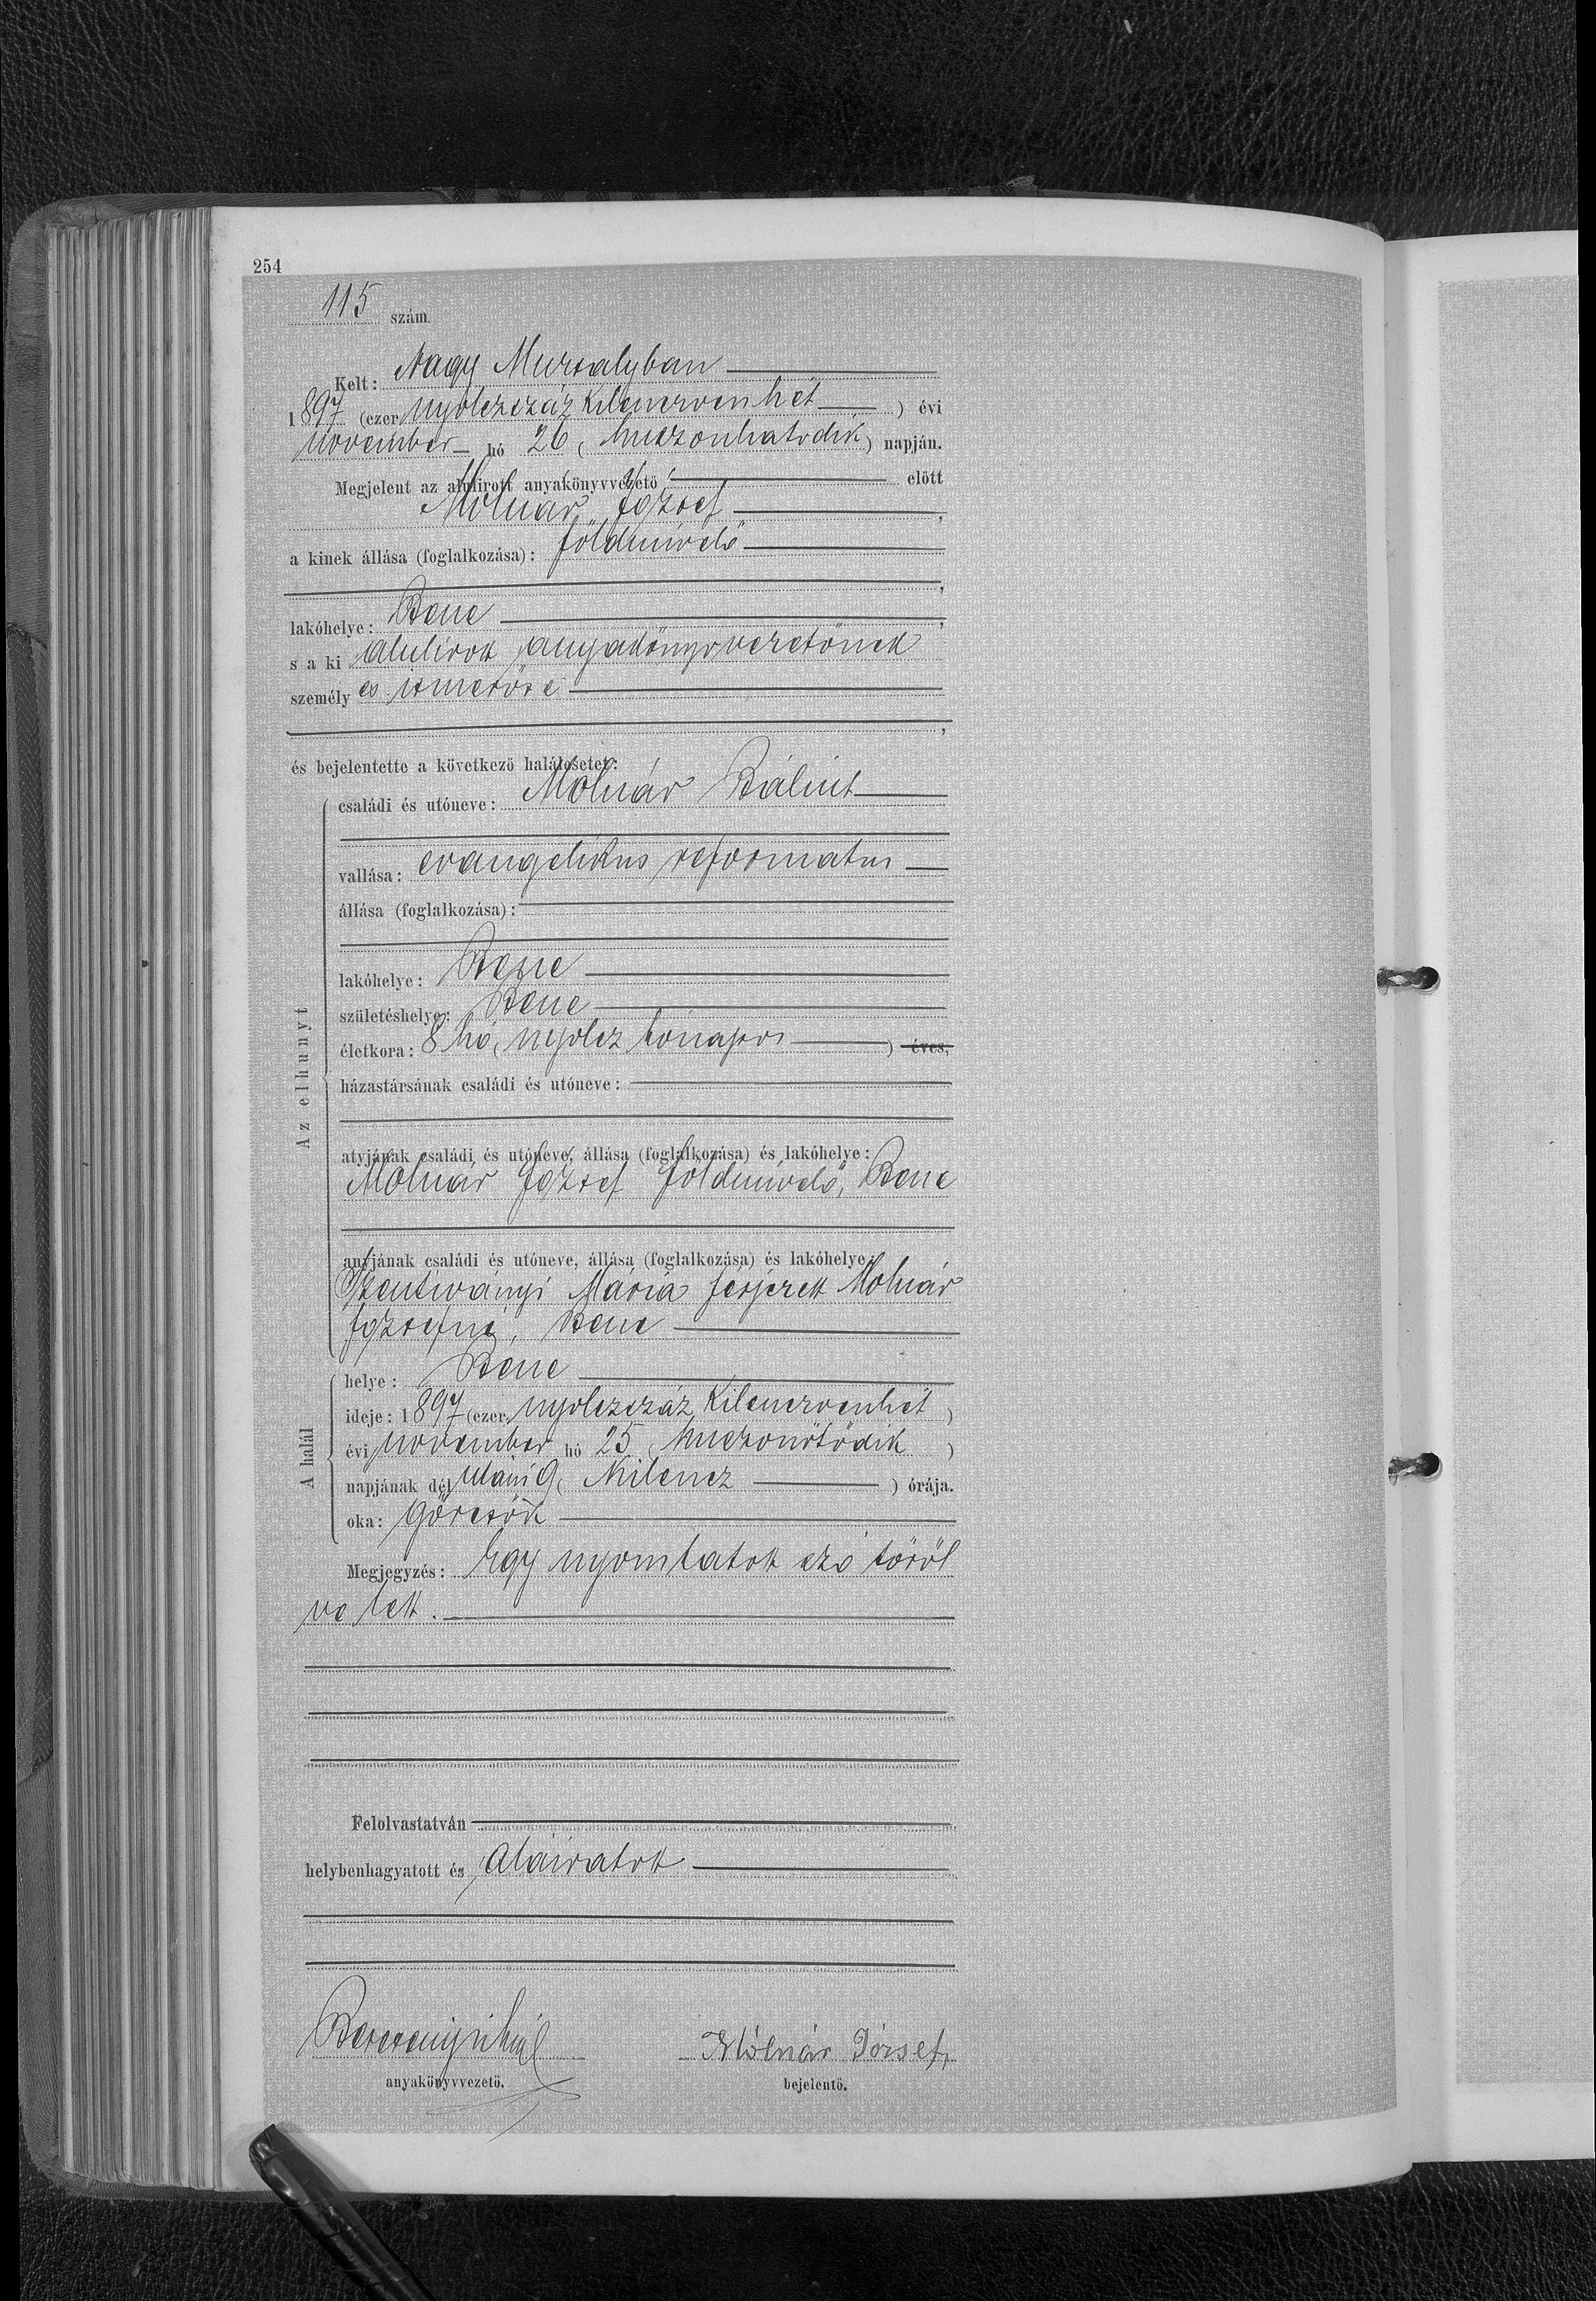 254
115 szám.
Kelt: Nagy Muzsalyban
1897 (ezer nyolczszáz kilenczvenhét) évi
november hó 26 (huszonhatodik) napján.
Megjelent az alulirott anyakönyvvezető előtt
Molnár József,
a kinek állása (foglalkozása): földmívelő
,
lakóhelye: Bene,
s a ki alulirott anyakönyvvezetőnek
személyes ismerőse
,
és bejelentette a következő halálesetet:
Az elhunyt
családi és utóneve: Molnár Bálint
vallása: evangelikus reformatus
állása (foglalkozása):
lakóhelye: Bene
születéshelye: Bene
életkora: 8 hó (nyolcz hónapos) éves,
házastársának családi és utóneve:
atyjának családi és utóneve, állása (foglalkozása) és lakóhelye:
Molnár József földmívelő, Bene
anyjának családi és utóneve, állása (foglalkozása) és lakóhelye:
Szentiványi Mária férjezett Molnár
Józsefné, Bene
A halál
helye: Bene
ideje: 1897 (ezer nyolczszáz kilenczvenhét)
évi november hó 25 (huszonötödik)
napjának dél utáni 9 (kilencz) órája.
oka: görcsök
Megjegyzés: Egy nyomtatott szó töröl
ve lett.
Felolvastatván
helybenhagyatott és aláiratott
Molnár József,
anyakönyvvezető. bejelentő.